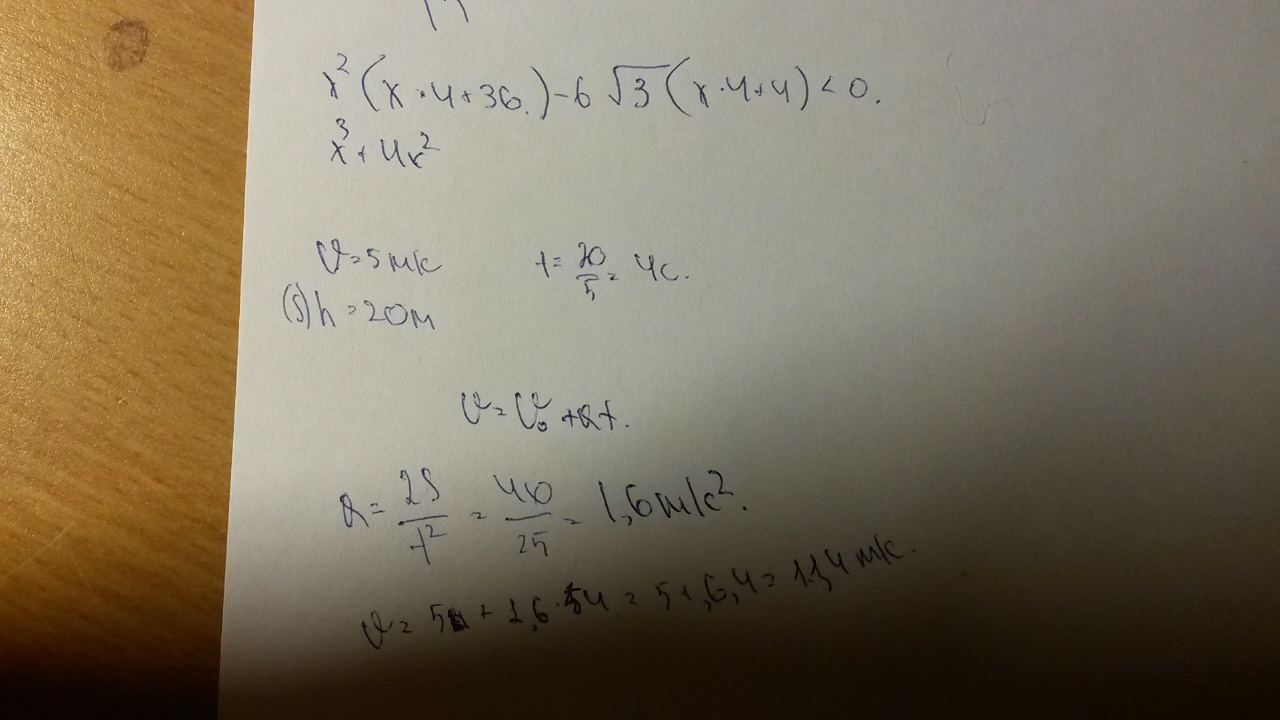 x²(x·4+36.)-6√3(x·4+4)<0.
x³+4x²
υ=5м/с t=20/5=4с.
(S)h=20м
υ=υ₀+at.
a=2S/t²=40/25=1,6м/с².
υ=5+1,6·4=5+6,4=11,4м/с.